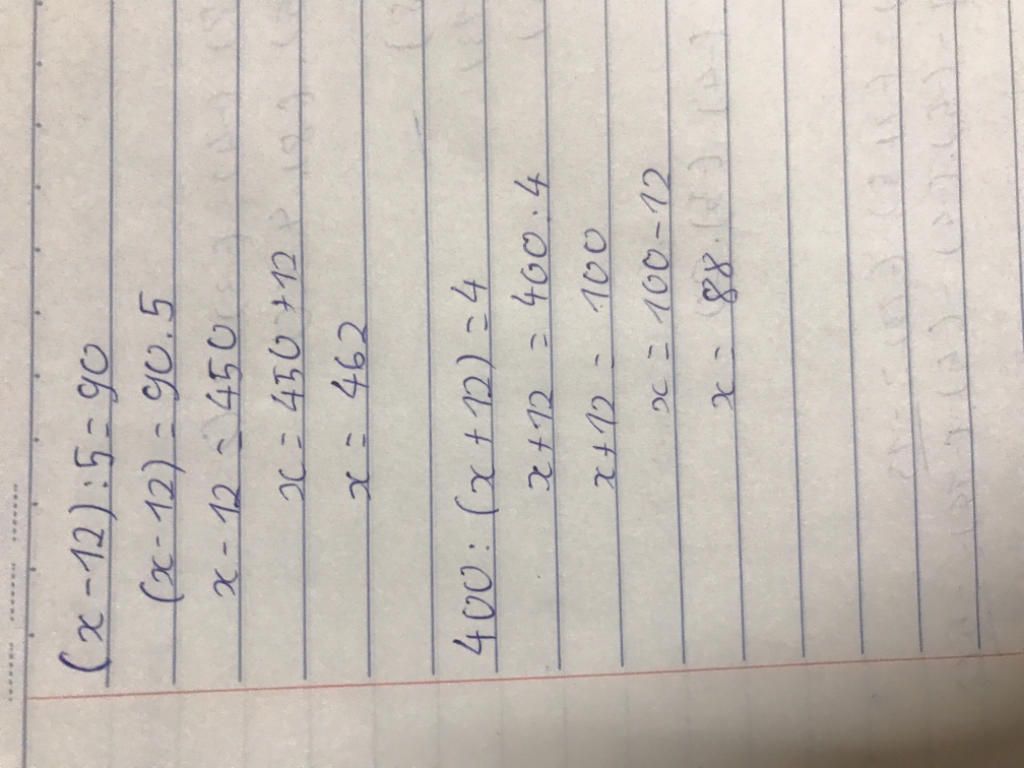 (x-12):5=90
(x-12)=90.5
x-12=450
x=450+12
x=462
400:(x+12)=4
x+12=400.4
x+12=100
x=100-12
x=88